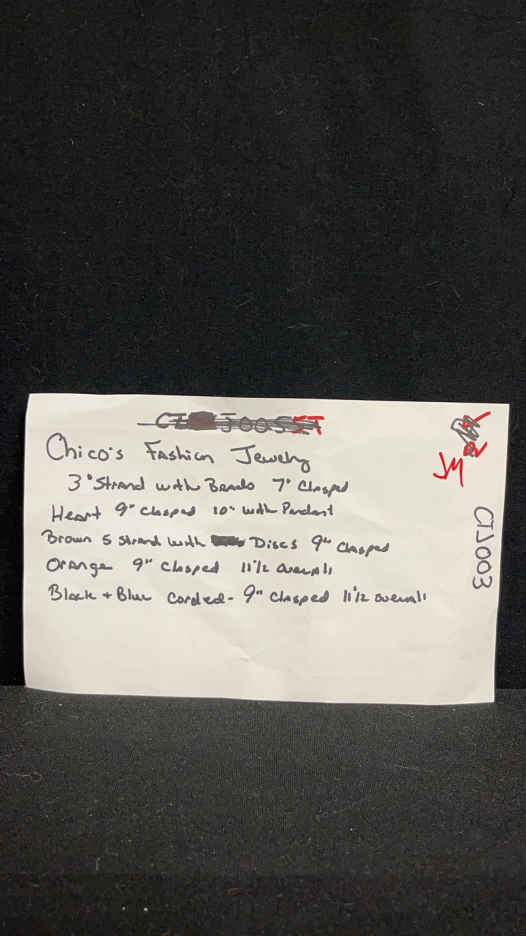 Chico's Fashion Jewelry
3" Strand with Beads 7" Clasped
Heart 9" Clasped 10" with Pendant
Brown 5 Strand with Discs 9" Clasped
Orange 9" Clasped 11 1/2 overall
Black + Blue Corded - 9" Clasped 11 1/2 overall
CIJ003